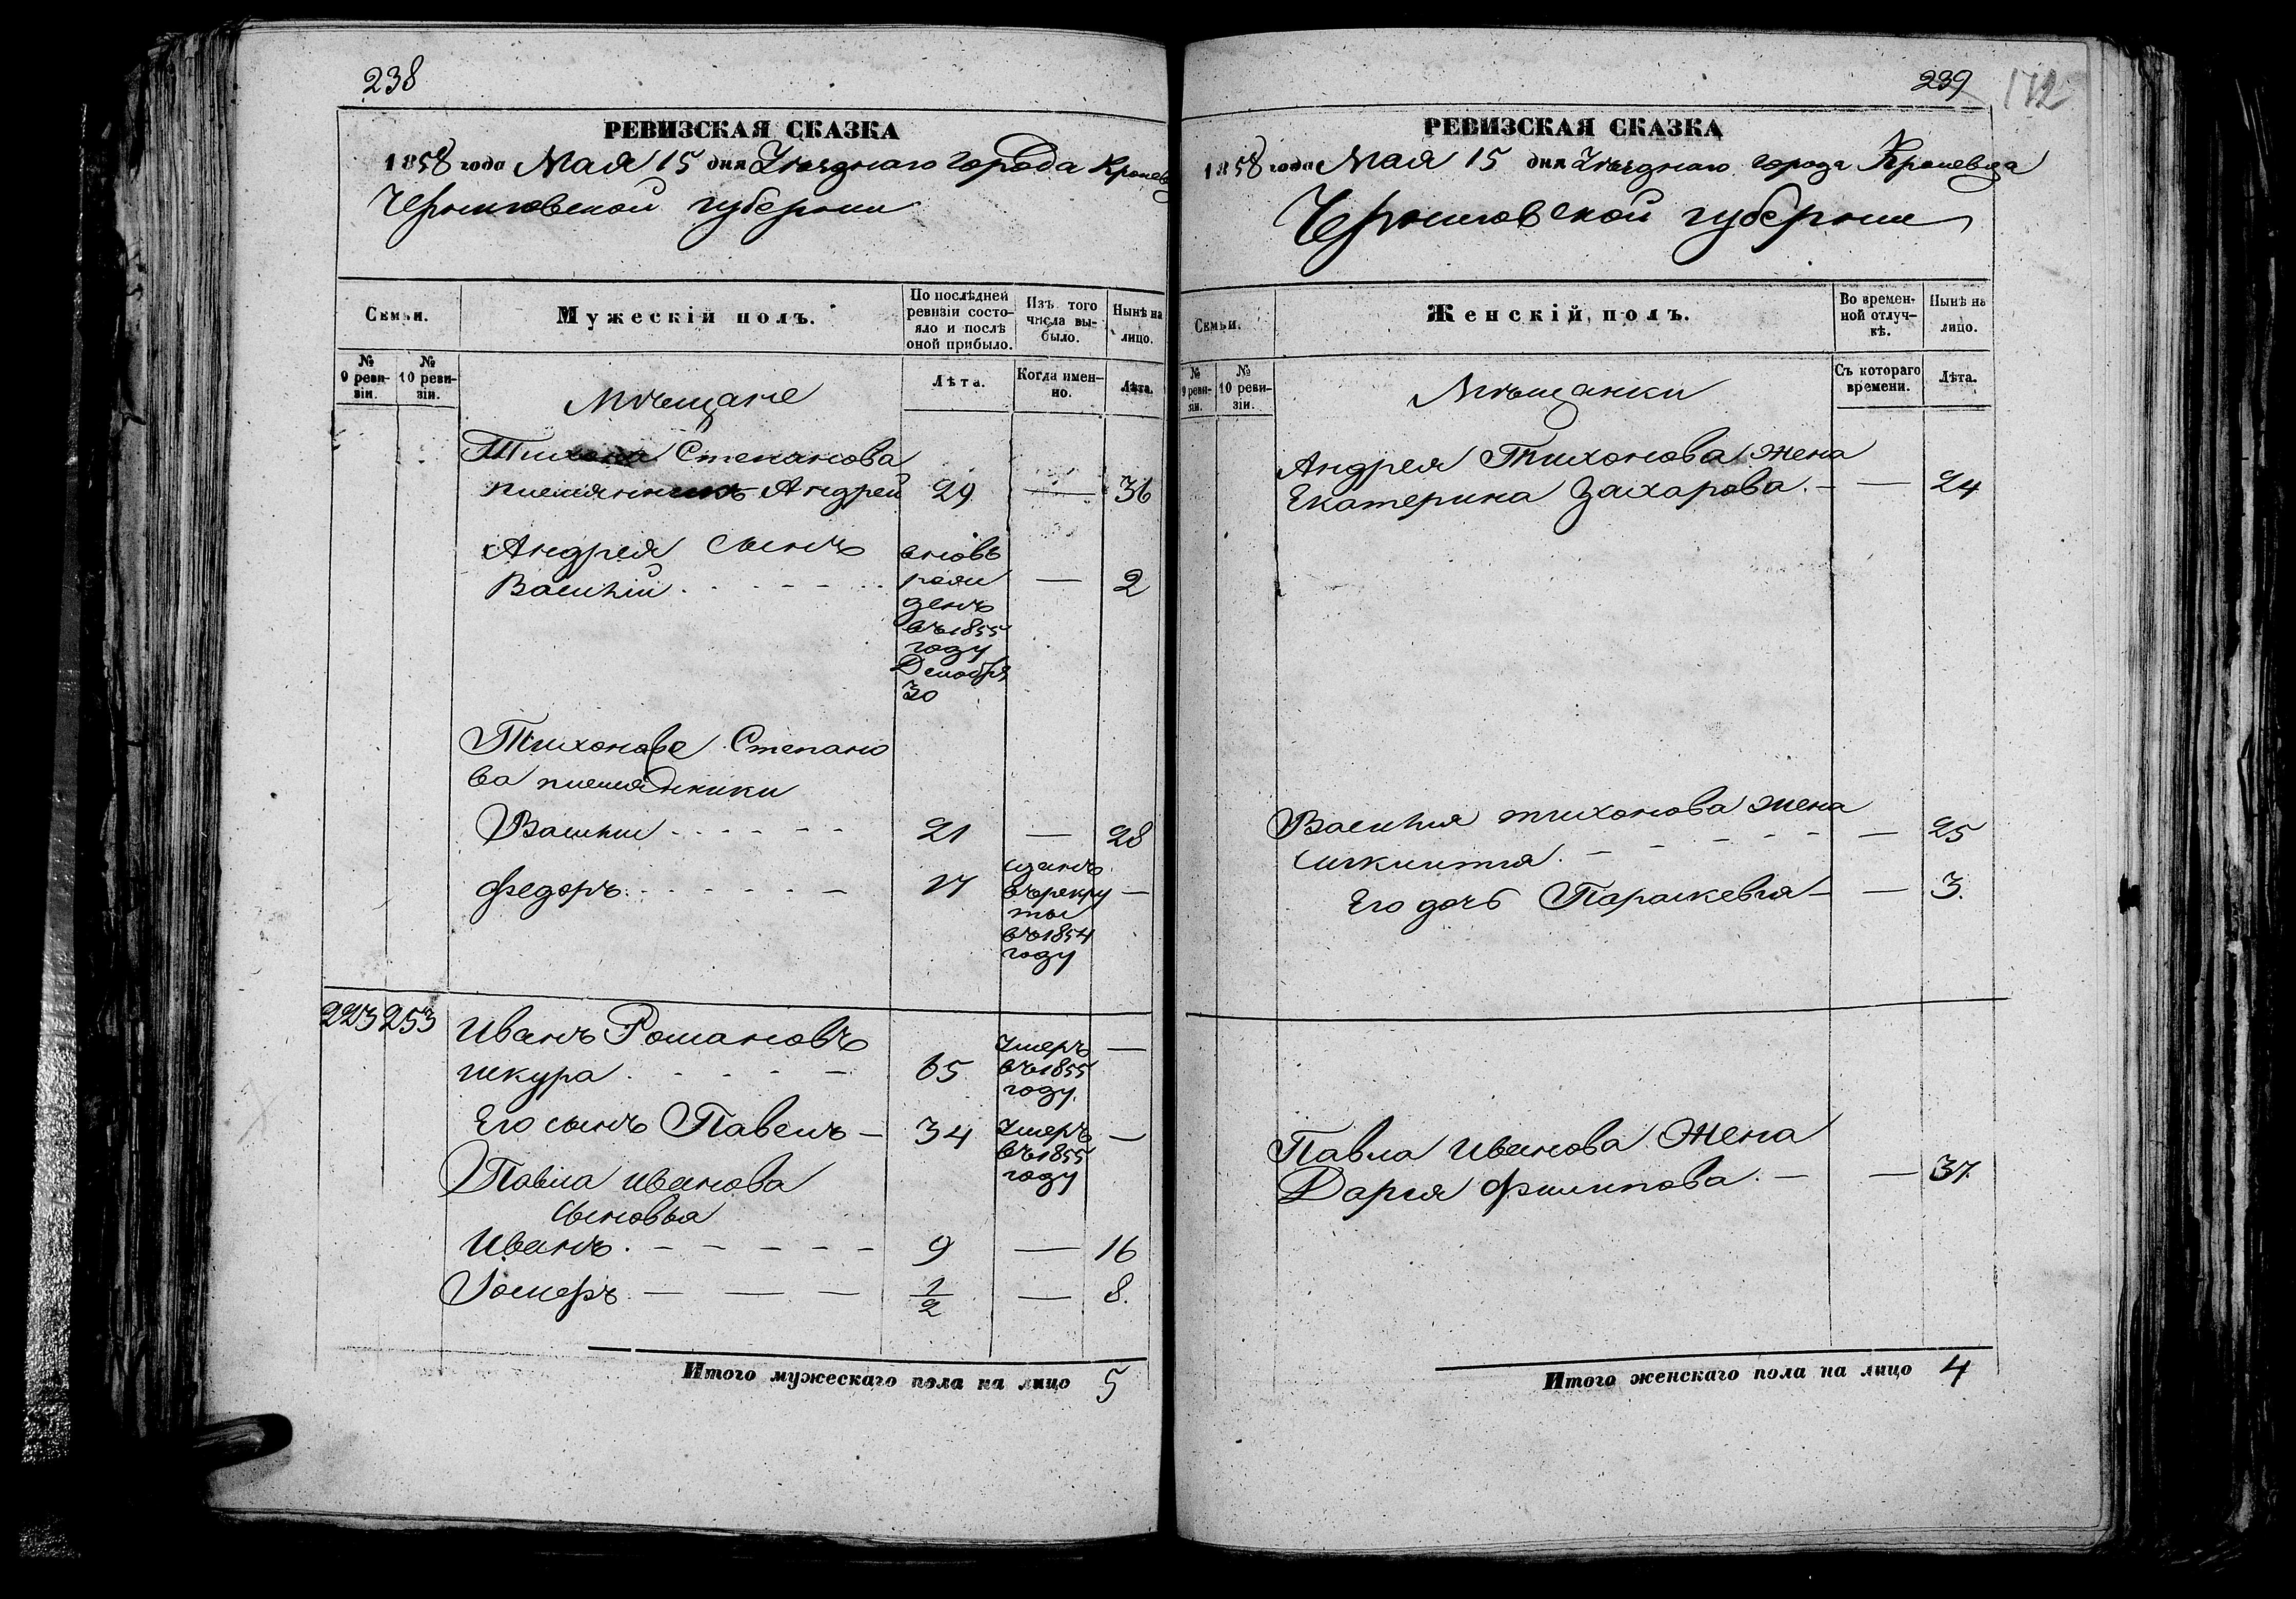 238
РЕВИЗСКАЯ СКАЗКА
1858 года Мая 15 дня Уѣзднаго города Кролев
Черниговской губерніи
Семьи.
Мужескій полъ.
По послѣдней ревизіи состо-
яло и послѣ
оной прибыло.
Изъ того
числа вы-
было.
Нынѣ на
лицо.
№
9 реви-
зіи.
№
10 реви-
зіи.
Мѣщане
Лѣта.
Когда имен-
но.
Лѣта.
Тихона Степанова
племянникъ Андрей 29 — 36
Андрея сынъ
Василій — 2
вновь
рож
денъ
въ 1855
году
Декабря
30
Тихонове Степано
ва племянники
Василій 21 — 28
Федоръ 17 —
сданъ
въ рекру
ты
въ 1854
году
223 253 Иванъ Романовъ
шкура 65 —
Умеръ
въ 1855
году.
Его сынъ Павелъ — 34 —
Умеръ
въ 1855
году
Павла Иванова
Сыновья
Иванъ 9 — 16
1/2 — 8.
Итого мужескаго пола на лицо 5
239
172
РЕВИЗСКАЯ СКАЗКА
1858 года Мая 15 дня Уѣзднаго города Кролевца
Черниговской губерніи
Семьи.
Женскій полъ.
Во времен-
ной отлуч-
кѣ.
Нынѣ на
лицо.
№
9 реви-
зіи.
№
10 реви-
зіи.
Мѣщанки
Съ котораго
времени.
Лѣта.
Андрея Тихонова жена
Екатерина Захарова. — — 24
Василія тихонова жена
— 25
Его дочь Параскевія — — 3.
Павла Иванова Жена
Дарія Филипова. — — 37.
Итого женскаго пола на лицо 4